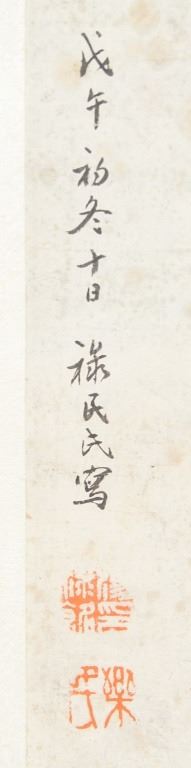 戊午初冬十日 祿民氏寫